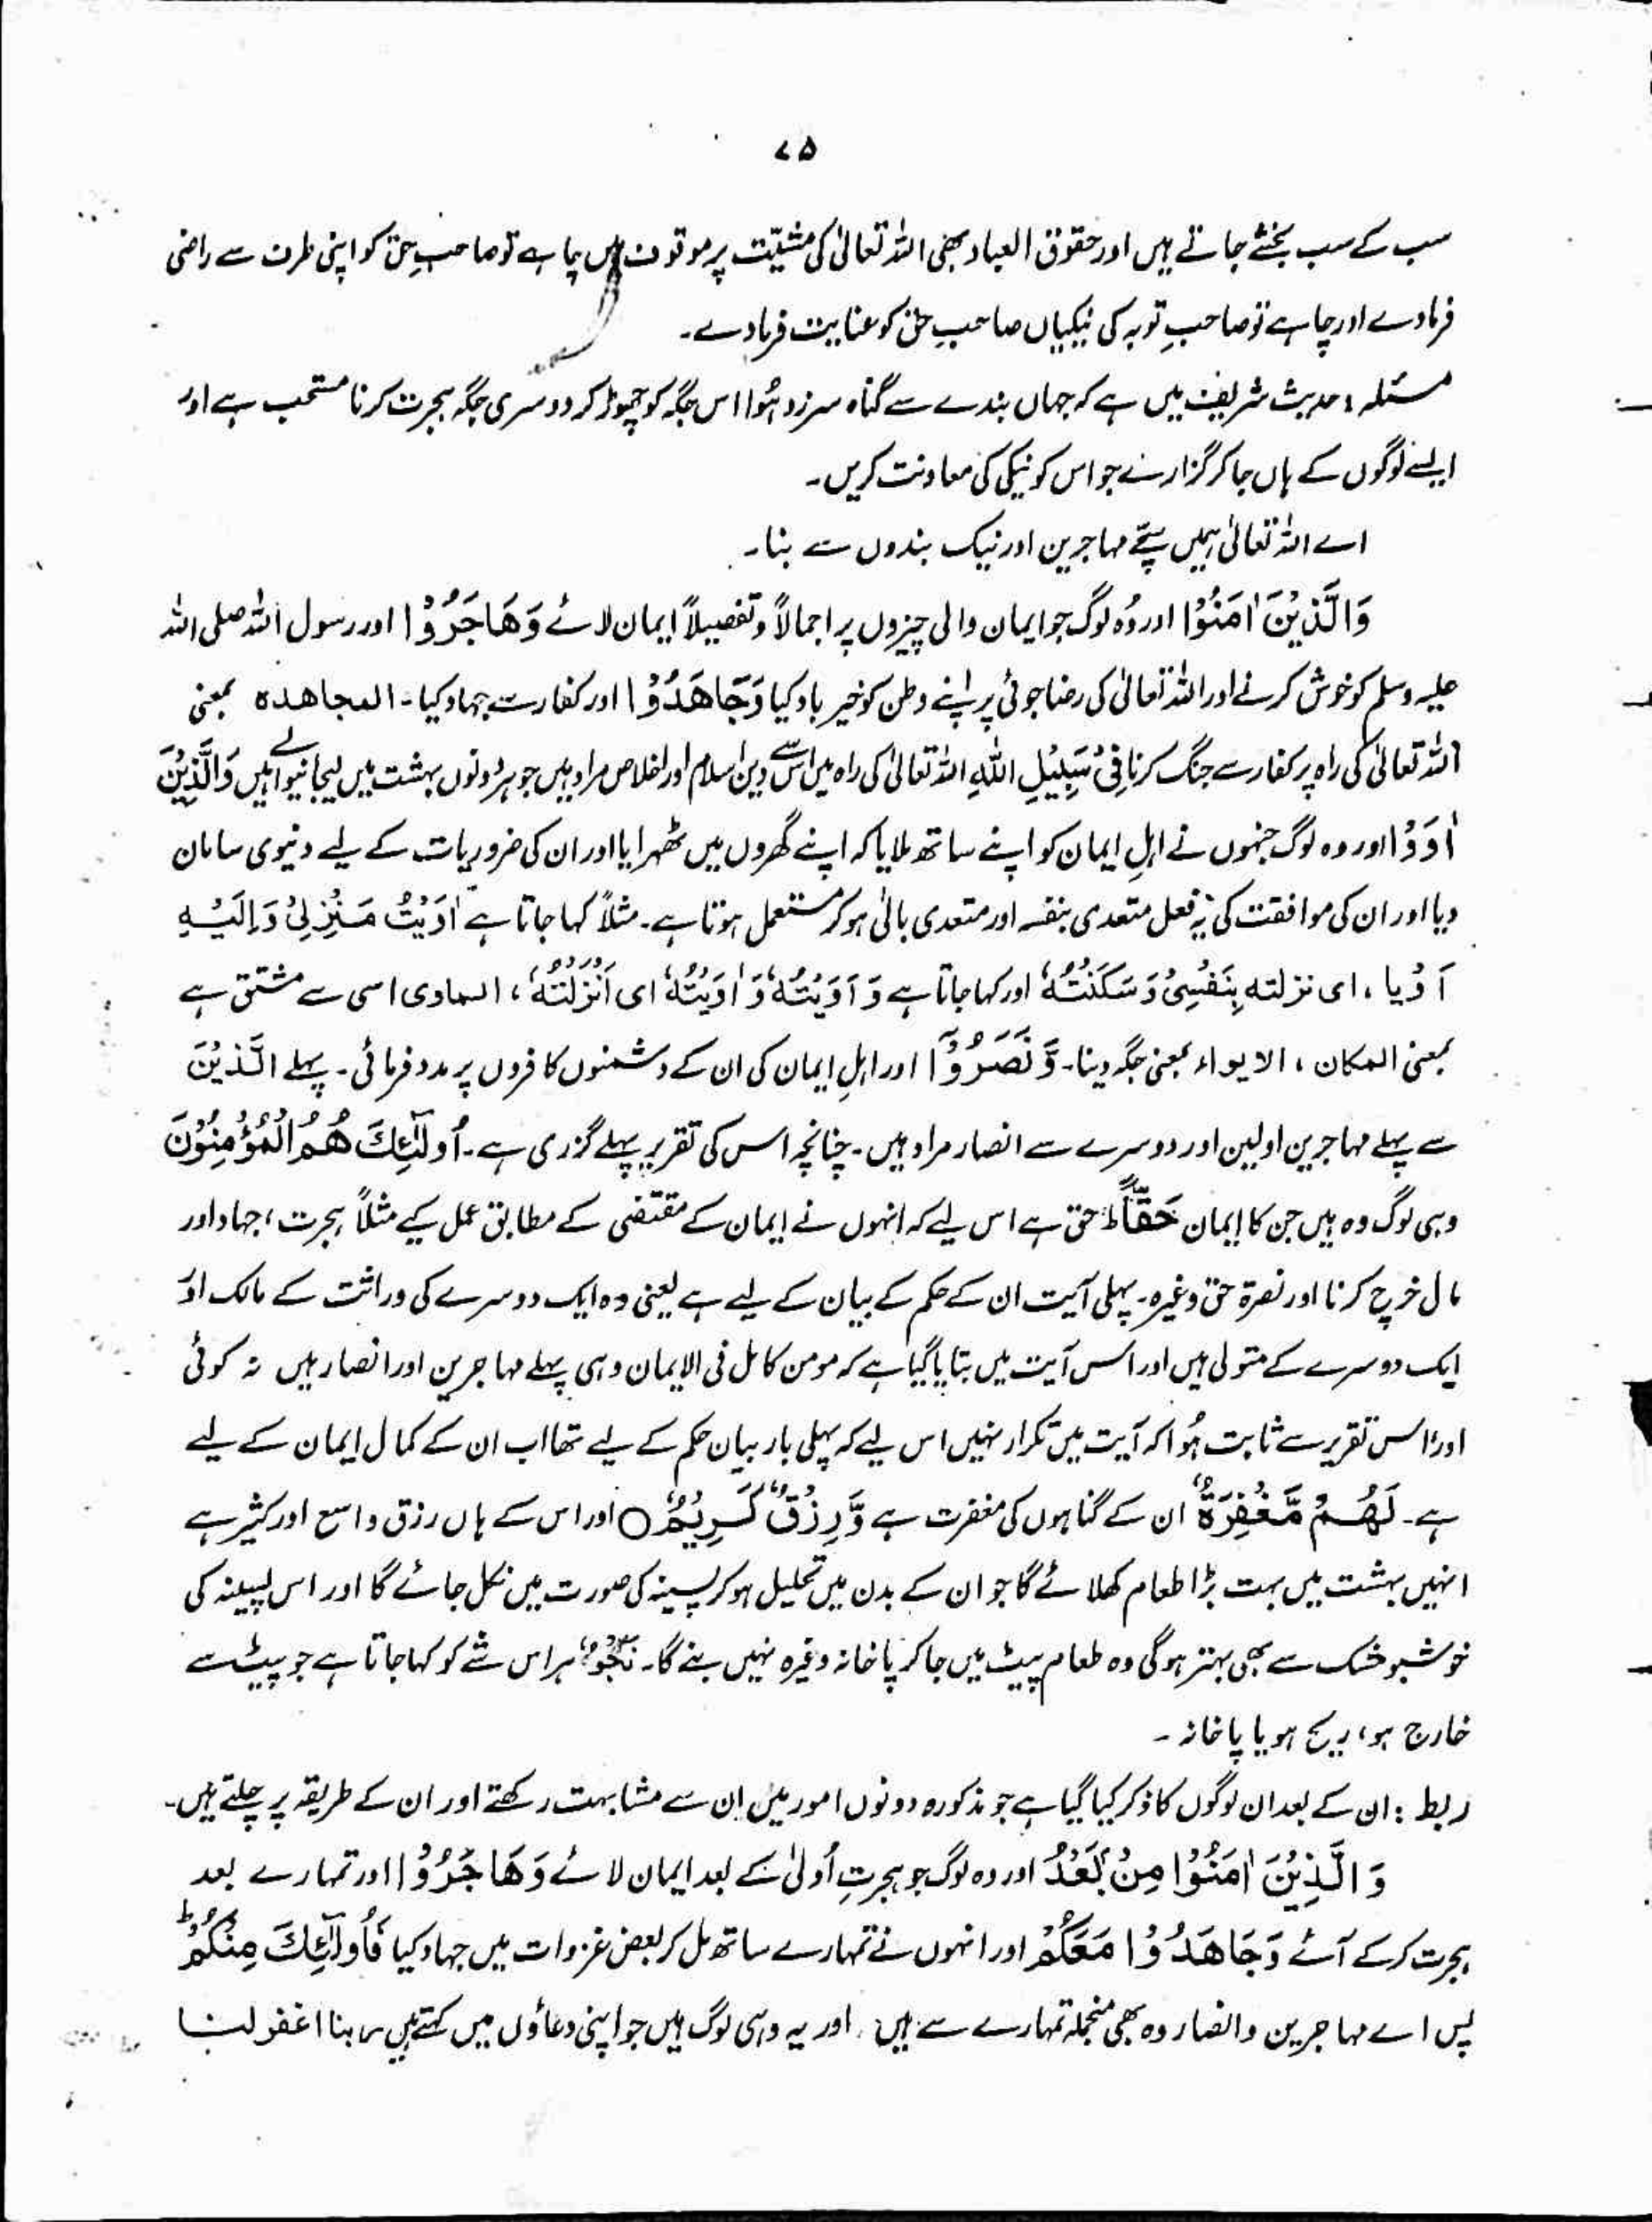 ۷۵
سب کے سب بخشے جاتے ہیں اور حقوق العباد بھی اللہ تعالیٰ کی مشیّت پر موقوف ہیں چاہے تو صاحبِ حق کو اپنی طرف سے راضی
فرما دے اور چاہے تو صاحبِ توبہ کی نیکیاں صاحبِ حق کو عنایت فرما دے۔
مسئلہ : حدیث شریف میں ہے کہ جہاں بندے سے گناہ سرزد ہُوا اس جگہ کو چھوڑ کر دوسری جگہ ہجرت کرنا مستحب ہے اور
ایسے لوگوں کے ہاں جا کر گزارے جو اس کو نیکی کی معاونت کریں۔
اے اللہ تعالیٰ ہمیں سچّے مہاجرین اور نیک بندوں سے بنا۔
وَالَّذِیْنَ اٰمَنُوْا اور وُہ لوگ جو ایمان والی چیزوں پر اجمالاً و تفصیلاً ایمان لائے وَھَاجَرُوْا اور رسول اللہ صلی اللہ
علیہ وسلم کو خوش کرنے اور اللہ تعالیٰ کی رضا جوئی پر اپنے وطن کو خیر باد کیا وَجَاھَدُوْا اور کفار سے جہاد کیا۔ المجاھدہ بمعنی
اللہ تعالیٰ کی راہ پر کفار سے جنگ کرنا فِیْ سَبِیْلِ اللّٰہِ اللہ تعالیٰ کی راہ میں اس سے دینِ اسلام اور اخلاص مراد ہیں جو ہر دونوں بہشت میں لیجانیوالے ہیں وَالَّذِیْنَ
اٰوَوْا اور وہ لوگ جنہوں نے اہلِ ایمان کو اپنے ساتھ ملایا کہ اپنے گھروں میں ٹھہرایا اور ان کی ضروریات کے لیے دنیوی سامان
دیا اور ان کی موافقت کی یہ فعل متعدی بنفسہ اور متعدی بالیٰ ہو کر مستعمل ہوتا ہے۔ مثلاً کہا جاتا ہے اٰوَیْتُ مَنْزِلِیْ وَاِلَیْہِ
آوُیا ، ای نزلتہ بِنَفْسِیْ وَسَکَنْتُہٗ اور کہا جاتا ہے وَ آوَیْتُہٗ وَ اٰوَیْتُہٗ ای اَنْزَلْتُہٗ ، الماوی اسی سے مشتق ہے
بمعنی المکان ، الایواء بمعنی جگہ دینا۔ وَّنَصَرُوْٓا اور اہلِ ایمان کی ان کے دشمنوں کافروں پر مدد فرمائی۔ پہلے الَّذِیْنَ
سے پہلے مہاجرین اولین اور دوسرے سے انصار مراد ہیں۔ چنانچہ اس کی تقریر پہلے گزری ہے۔ اُولٰٓئِکَ ھُمُ الْمُؤْمِنُوْنَ
وہی لوگ وہ ہیں جن کا ایمان حَقًّا ط حق ہے اس لیے کہ انہوں نے ایمان کے مقتضی کے مطابق عمل کیے مثلاً ہجرت ، جہاد اور
مال خرچ کرنا اور نصرۃ حق وغیرہ۔ پہلی آیت ان کے حکم کے بیان کے لیے ہے یعنی وہ ایک دوسرے کی وراثت کے مالک اور
ایک دوسرے کے متولی ہیں اور اس آیت میں بتایا گیا ہے کہ مومن کامل فی الایمان وہی پہلے مہاجرین اور انصار ہیں نہ کوئی
اور، اس تقریر سے ثابت ہُوا کہ آیت میں تکرار نہیں اس لیے کہ پہلی بار بیان حکم کے لیے تھا اب ان کے کمال ایمان کے لیے
ہے۔ لَھُمْ مَّغْفِرَۃٌ ان کے گناہوں کی مغفرت ہے وَّرِزْقٌ کَرِیْمٌ ○ اور اس کے ہاں رزق واسع اور کثیر ہے
انہیں بہشت میں بہت بڑا طعام کھلائے گا جو ان کے بدن میں تحلیل ہو کر پسینہ کی صورت میں نکل جائے گا اور اس پسینہ کی
خوشبو مشک سے بھی بہتر ہوگی وہ طعام پیٹ میں جا کر پاخانہ وغیرہ نہیں بنے گا۔ نَجْوٌ ہر اس شے کو کہا جاتا ہے جو پیٹ سے
خارج ہو، ریح ہو یا پاخانہ ۔
ربط : ان کے بعد ان لوگوں کا ذکر کیا گیا ہے جو مذکورہ دونوں امور میں ان سے مشابہت رکھتے اور ان کے طریقہ پر چلتے ہیں۔
وَ الَّذِیْنَ اٰمَنُوْا مِنْۢ بَعْدُ اور وہ لوگ جو ہجرتِ اُولیٰ کے بعد ایمان لائے وَ ھَاجَرُوْا اور تمہارے بعد
ہجرت کر کے آئے وَ جَاھَدُوْا مَعَکُمْ اور انہوں نے تمہارے ساتھ مل کر بعض غزوات میں جہاد کیا فَاُولٰٓئِکَ مِنْکُمْ ط
پس اے مہاجرین و انصار وہ بھی منجملہ تمہارے سے ہیں۔ اور یہ وہی لوگ ہیں جو اپنی دعاؤں میں کہتے ہیں ربنا اغفر لنا